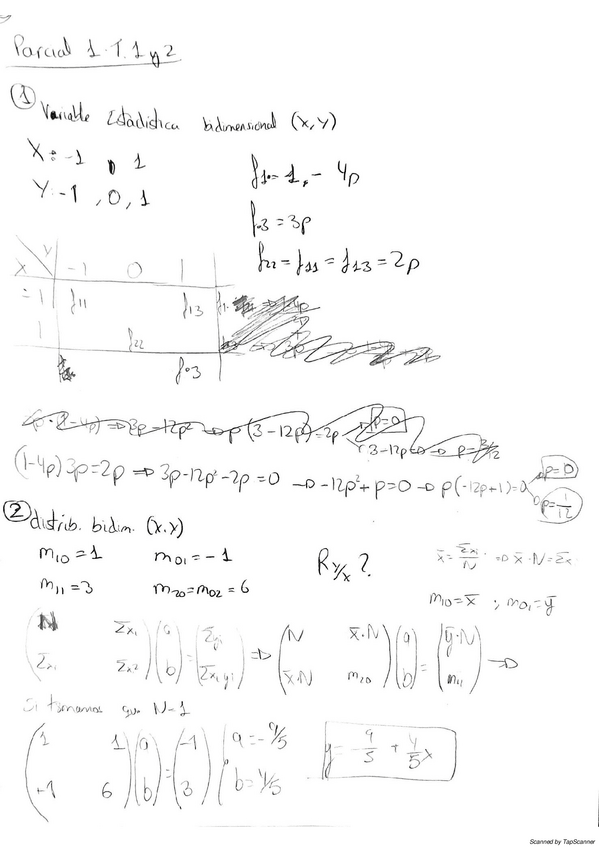 Parcial 1. T. 1 y 2
① Variable Estadística bidimensional (X,Y)
X = -1, 1
Y: -1, 0, 1
f₁. = 1 - 4p
f.₃ = 3p
f₂₂ = f₁₁ = f₁₃ = 2p
X Y -1 0 1
-1 f₁₁ f₁₃ f₁.
1 f₂₂
f.₃
(1-4p) 3p = 2p ⇒ 3p - 12p² - 2p = 0 → -12p² + p = 0 → p(-12p+1) = 0 p = 0
p = 1/12
② distrib. bidim. (x,y)
m₁₀ = 1 m₀₁ = -1
m₁₁ = 3 m₂₀ = m₀₂ = 6
R Y/X ?
x̄ = Σxᵢ/N ⇒ x̄·N = Σxᵢ
m₁₀ = x̄ ; m₀₁ = ȳ
(N Σxᵢ) (a) = (Σyᵢ) ⇒ (N x̄·N) (a) = (ȳ·N) →
(Σxᵢ Σxᵢ²) (b) (Σxᵢyᵢ) (x̄·N m₂₀) (b) (m₁₁)
Si tomamos que N=1
(1 1) (a) = (-1) a = -9/5
(+1 6) (b) (3) b = 4/5
y = -9/5 + 4/5 x
Scanned by TapScanner